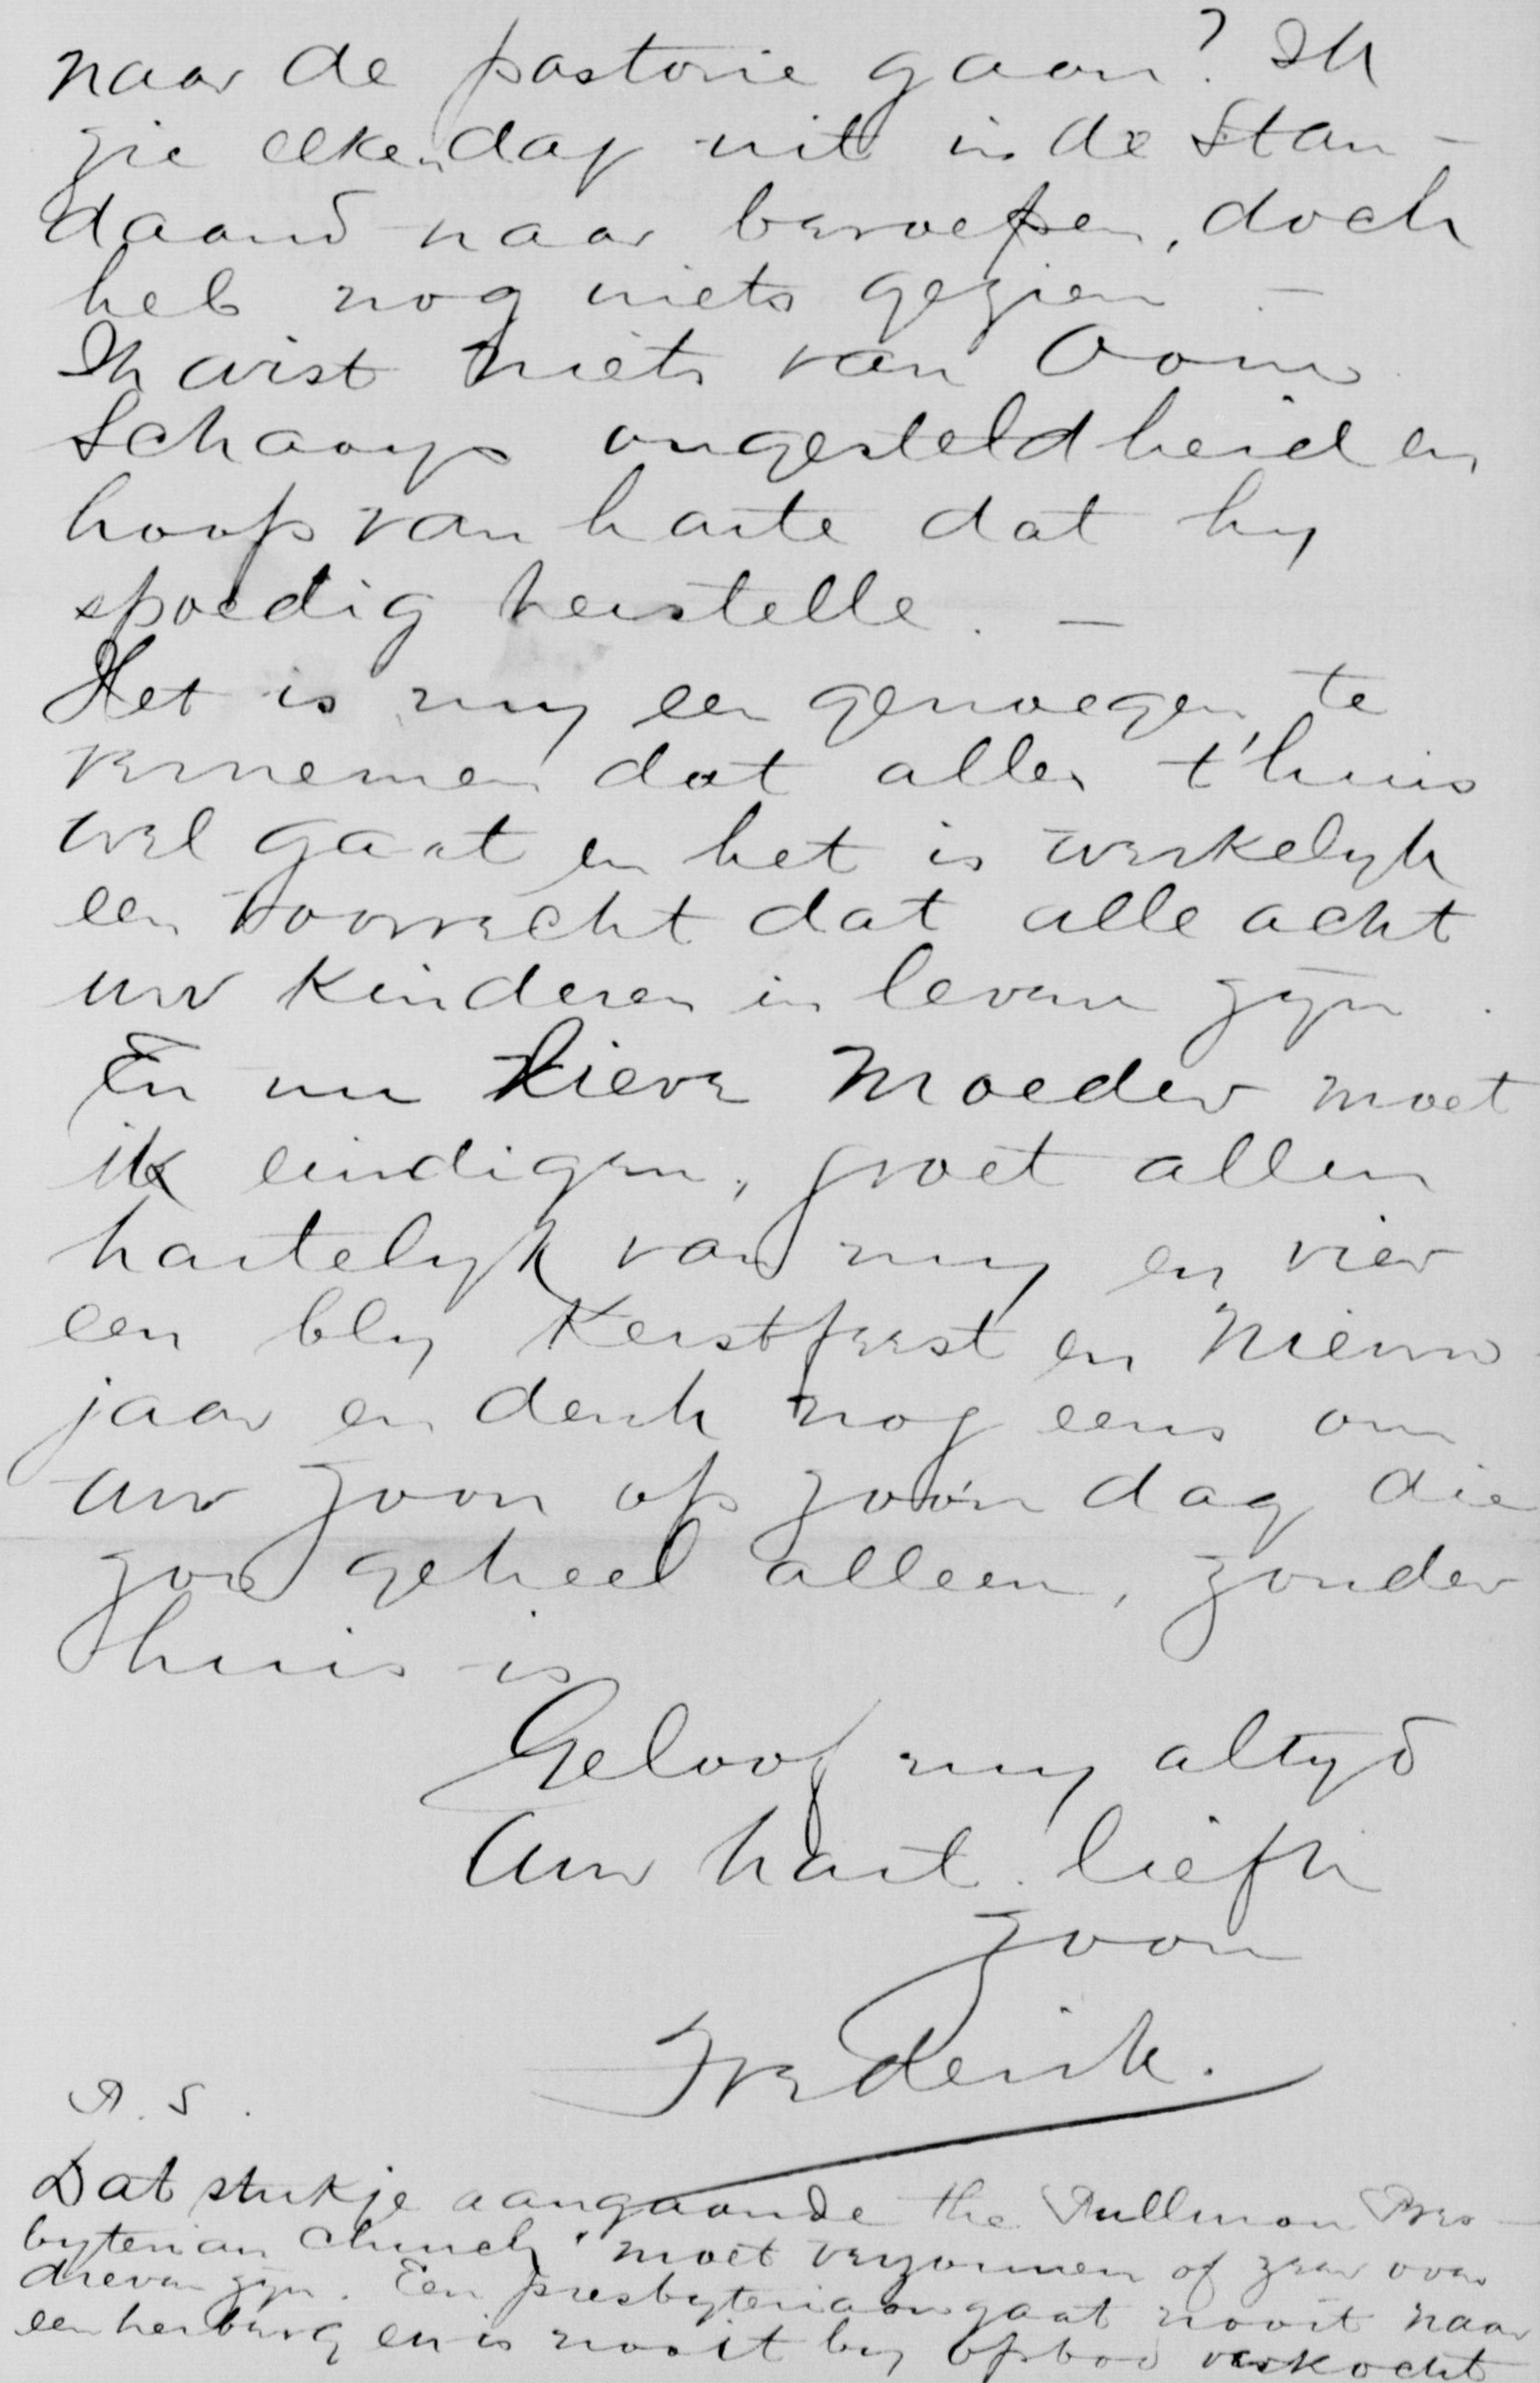 naar de pastorie gaan? Ik
zie elken dag uit in de Stan-
daard naar beroepen, doch
heb nog niets gezien -
Ik wist niets van Ooms
Schaays ongesteldheid en
hoop van harte dat hy
spoedig herstelle. -
Het is my een genoegen, te
vernemen dat alles t'huis
wel gaat en het is werkelyk
een voorrecht dat alle acht
uw kinderen in leven zyn.
En nu lieve Moeder moet
ik eindigen, groet allen
hartelyk van my en vier
een bly Kerstfeest en Nieuw-
jaar en denk nog eens om
uw zoon op zoo'n dag die
zoo geheel alleen, zonder
thuis is
Geloof my altyd
Uw hart. liefh
zoon
Frederik.
P.S.
Dat stukje aangaande the Pullman Pres-
byterian Church" moet verzonnen of zeer over
dreven zyn. Een presbyteriaan gaat nooit naar
een herberg en is nooit by opbod verkocht